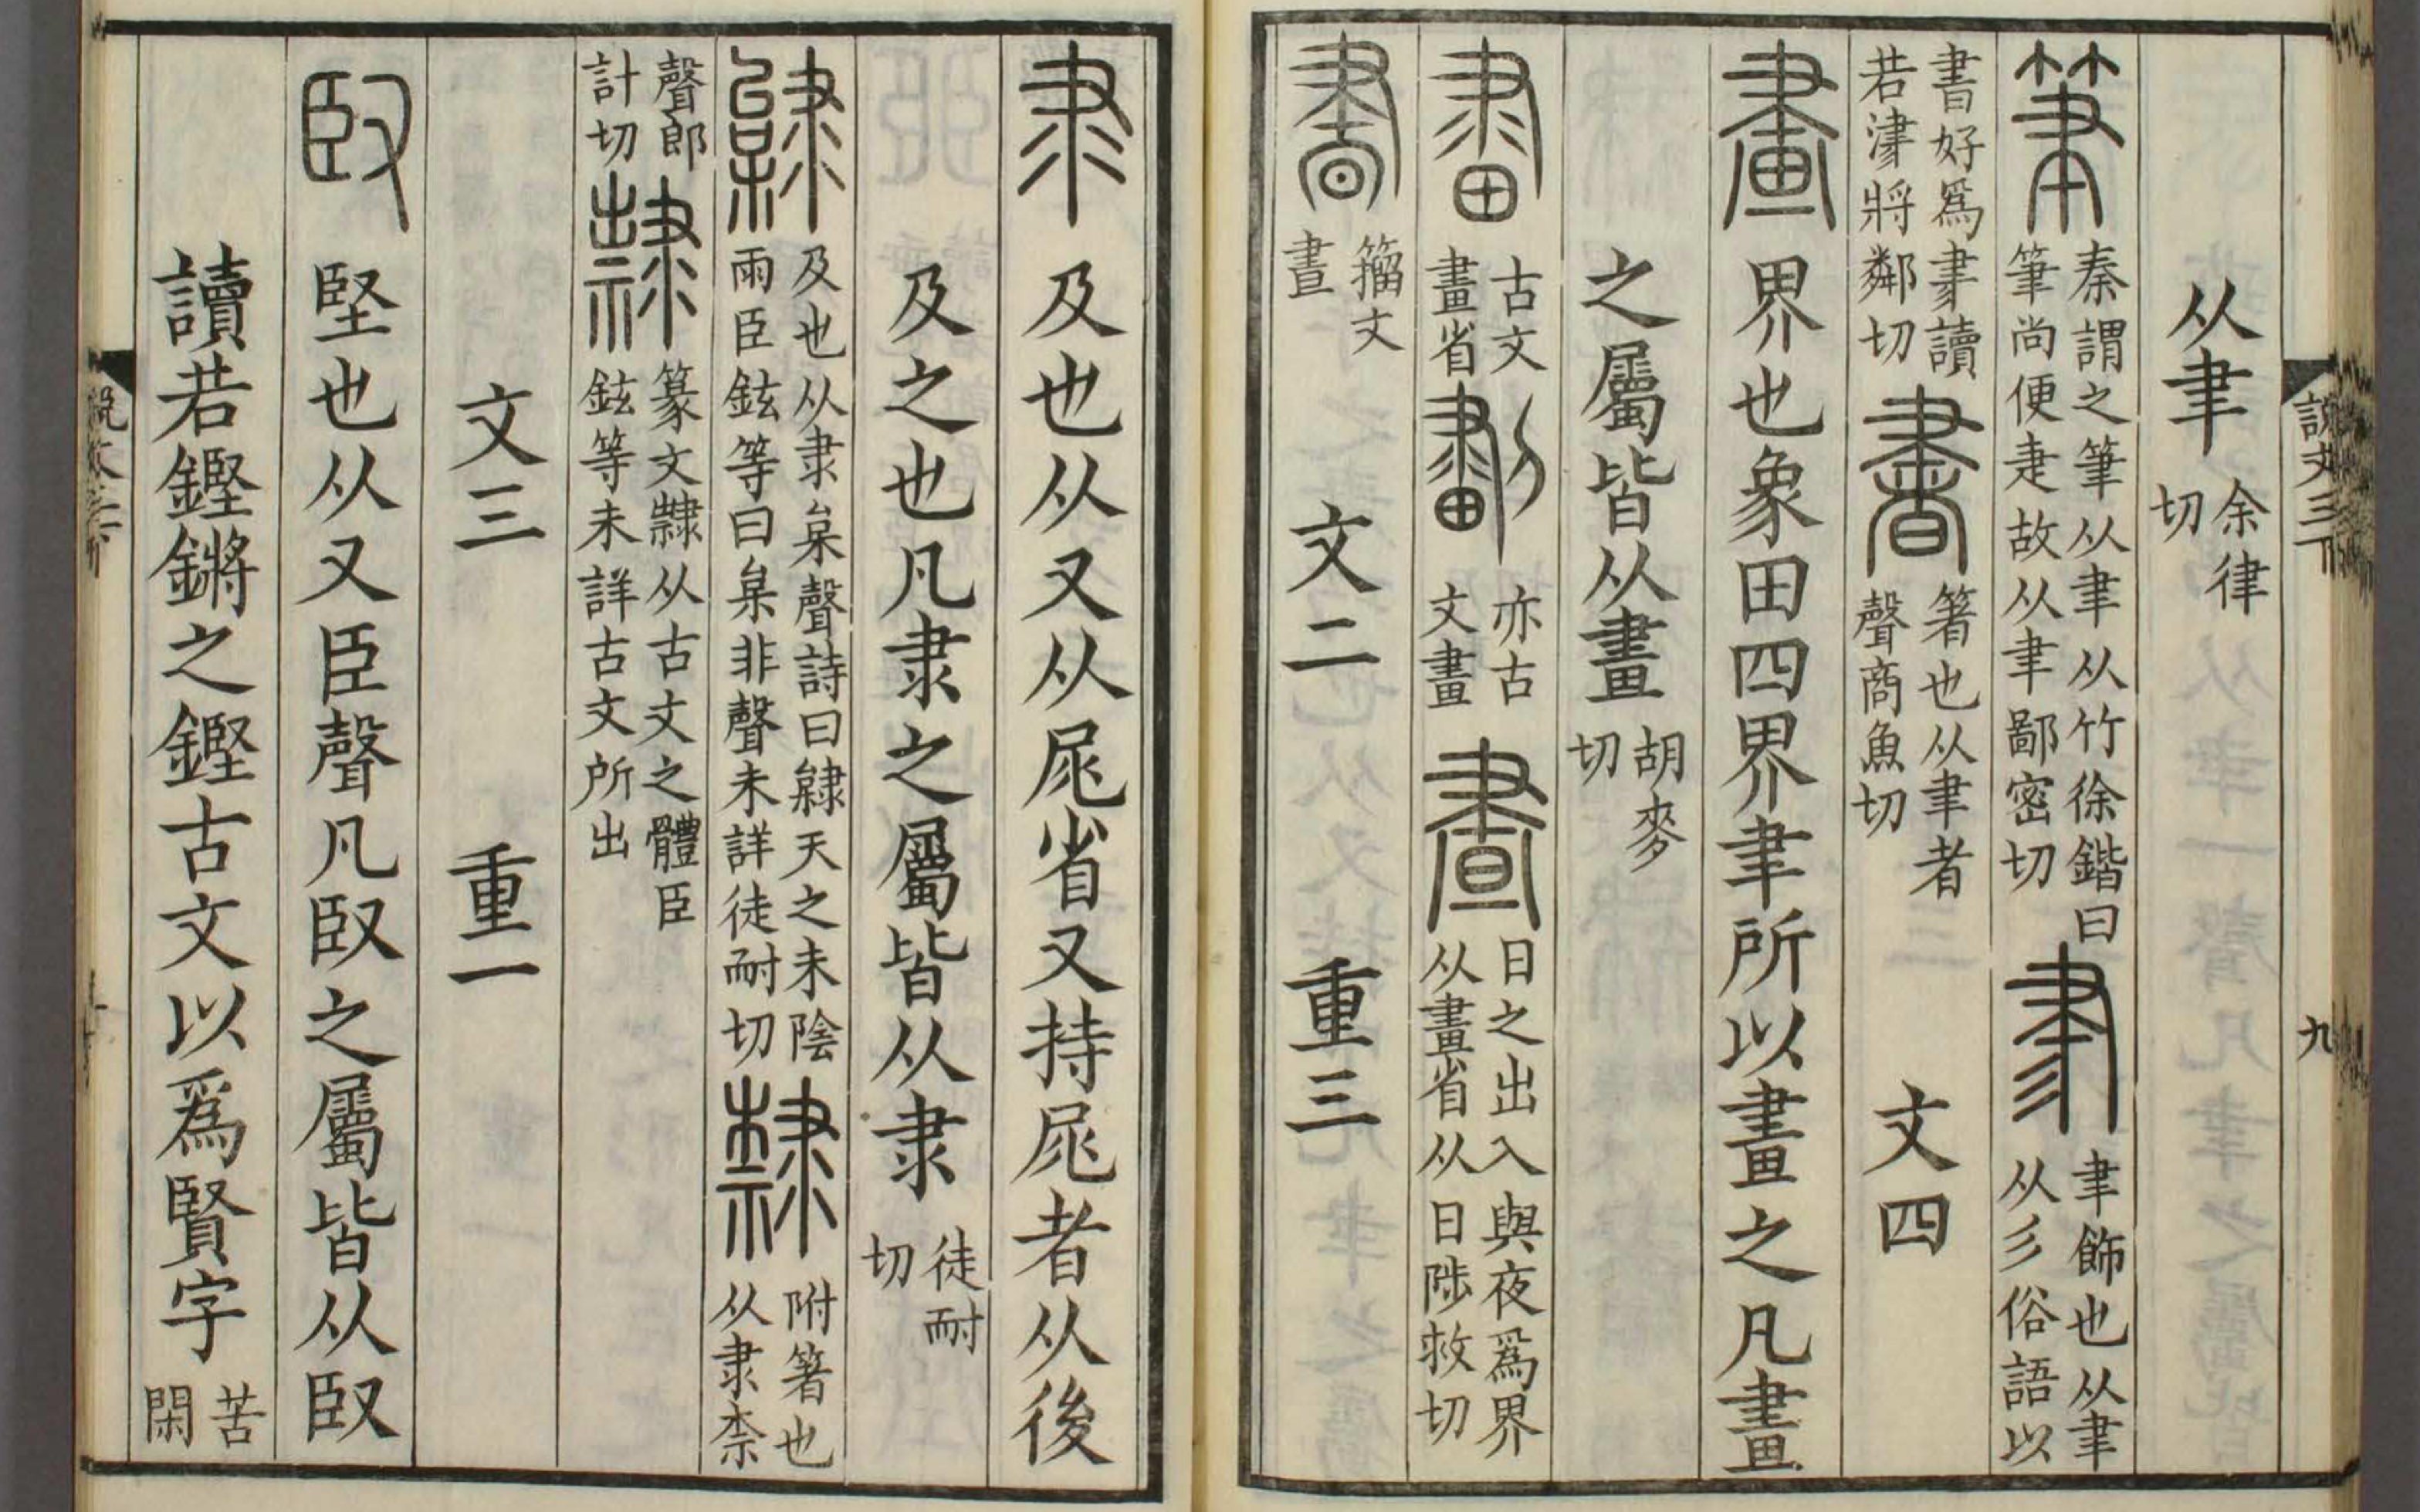 說文三下
九
从聿余律切
筆秦謂之筆从聿从竹徐鍇曰筆尚便疌故从聿鄙密切𦘔聿飾也从聿从彡俗語以
書好爲𦘔讀若津將鄰切書箸也从聿者聲商魚切 文四
畫界也象田四界聿所以畫之凡畫
之屬皆从畫胡麥切
畫古文畫省劃亦古文畫晝日之出入與夜爲界从畫省从日陟救切
晝籀文晝 文二 重三
隶及也从又从㞑省又持㞑者从後
及之也凡隶之屬皆从隶徒耐切
隸及也从隶枲聲詩曰隸天之未陰雨臣鉉等曰枲非聲未詳徒耐切隷附箸也从隶柰
聲郎計切隸篆文隸从古文之體臣鉉等未詳古文所出
文三 重一
臤堅也从又臣聲凡臤之屬皆从臤
讀若鏗鏘之鏗古文以爲賢字苦閑